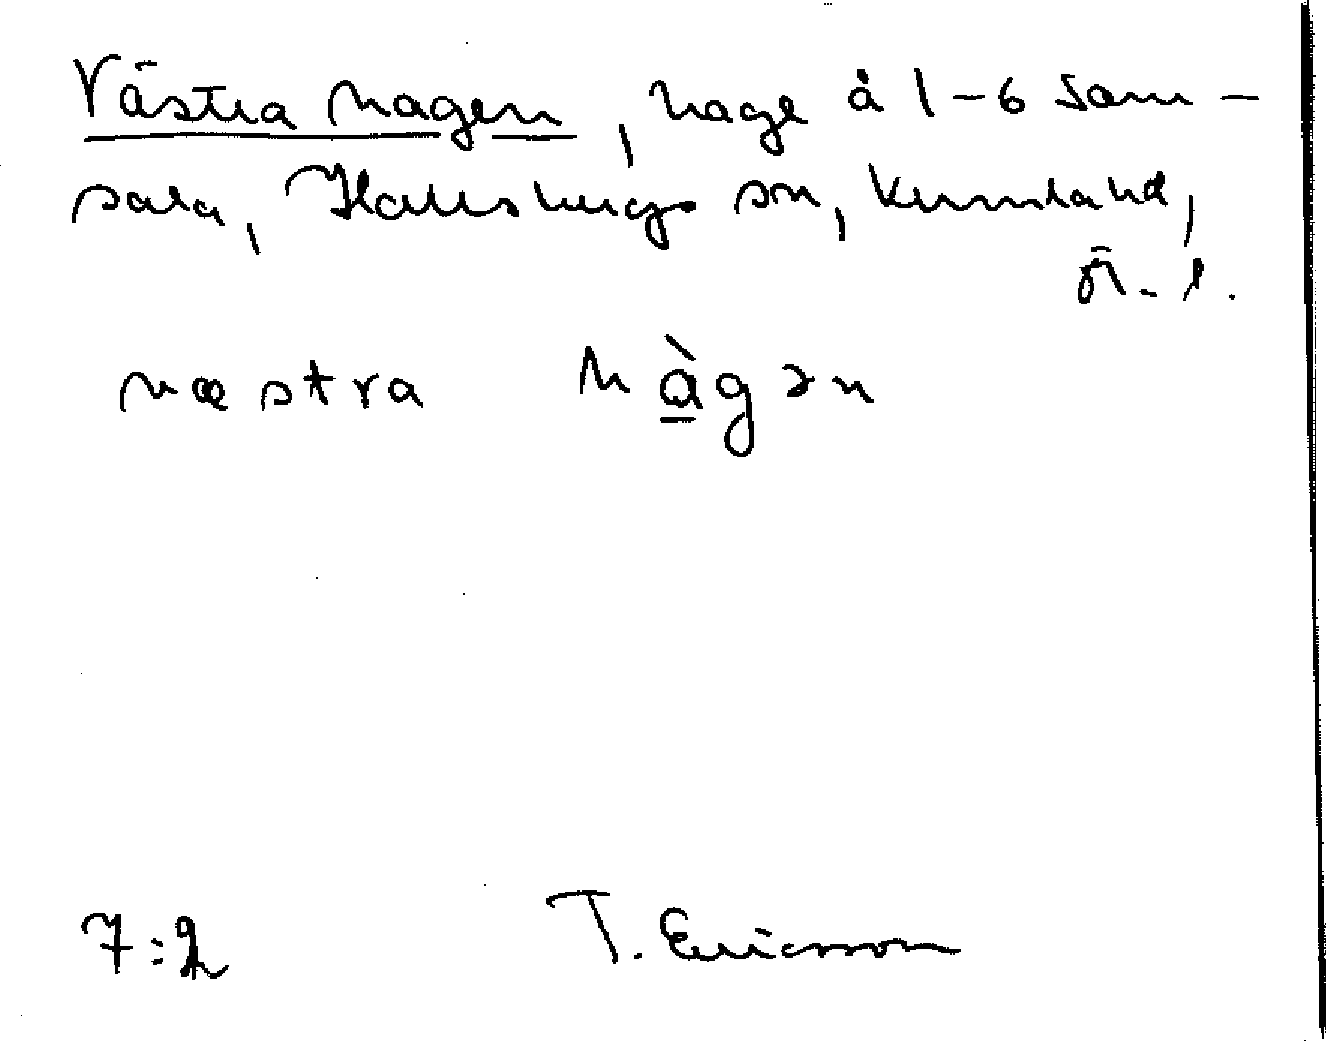 Västra hagen, hage å 1-6 Sam-
sala, Hallsbergs sn, Kumla hd,
Ö. l.
væstra hàgən
7:2 T. Ericsson